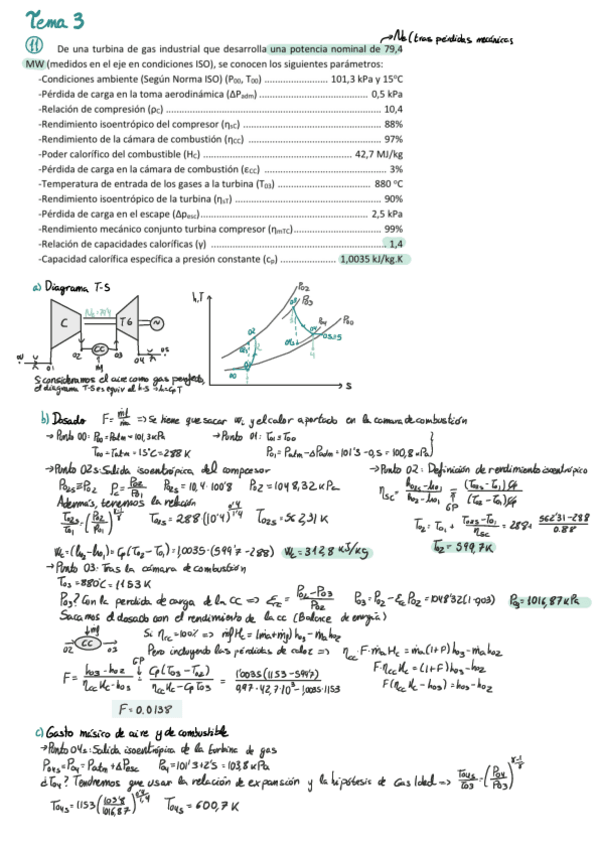 Tema 3
11 De una turbina de gas industrial que desarrolla una potencia nominal de 79,4 → Nb (tras pérdidas mecánicas
MW (medidos en el eje en condiciones ISO), se conocen los siguientes parámetros:
-Condiciones ambiente (Según Norma ISO) (P₀₀, T₀₀) ........................ 101,3 kPa y 15ºC
-Pérdida de carga en la toma aerodinámica (ΔPadm) ................................. 0,5 kPa
-Relación de compresión (ρc) ........................................................ 10,4
-Rendimiento isoentrópico del compresor (ηsc) ........................................ 88%
-Rendimiento de la cámara de combustión (ηcc) ........................................ 97%
-Poder calorífico del combustible (Hc) ........................................ 42,7 MJ/kg
-Pérdida de carga en la cámara de combustión (εcc) ........................................ 3%
-Temperatura de entrada de los gases a la turbina (T₀₃) ........................... 880 ºC
-Rendimiento isoentrópico de la turbina (ηsT) ........................................ 90%
-Pérdida de carga en el escape (Δpesc) ........................................ 2,5 kPa
-Rendimiento mecánico conjunto turbina compresor (ηmTC) ........................... 99%
-Relación de capacidades caloríficas (γ) ........................................ 1,4
-Capacidad calorífica específica a presión constante (cp) ................... 1,0035 kJ/kg.K
a) Diagrama T-S
C TG ~
02 CC 03 04 05
01
h,T P02 P03 P04 P00
S
Si consideramos el aire como gas perfecto,
el diagrama T-S es equiv al h-s → h=CpT
b) Dosado F = ṁf/ṁa ⇒ Se tiene que sacar wc y el calor aportado en la cámara de combustión
→ Punto 00: P00 = Patm = 101,3 kPa → Punto 01: T01 = T00
T00 = Tatm = 15ºC = 288 K P01 = Patm - ΔPadm = 101'3 - 0,5 = 100,8 kPa
→ Punto 02s: Salida isoentrópica del compresor → Punto 02: Definición de rendimiento isoentrópico
P02s = P02 ρc = P02/P01 P02s = 10,4 · 100'8 P02 = 1048,32 kPa ηsc = (h02s - h01)/(h02 - h01) = (T02s - T01)Cp/(T02 - T01)Cp
GP
Además, tenemos la relación
T02s/T01 = (P02/P01) T02s = 288 (10'4)^0'4/1'4 T02s = 562,31 K T02 = T01 + (T02s - T01)/ηsc = 288 + (562'31 - 288)/0.88
wc = (h02 - h01) = Cp(T02 - T01) = 1,0035 · (599'7 - 288) wc = 312,8 kJ/kg T02 = 599,7 K
→ Punto 03: Tras la cámara de combustión
T03 = 880ºC = 1153 K
P03? Con la perdida de carga de la CC ⇒ εcc = (P02 - P03)/P02 P03 = P02 - εcc P02 = 1048'32 (1 - 0,03) P03 = 1016,87 kPa
Sacamos el dosado con el rendimiento de la cc (Balance de energía)
02 CC 03 Si ηcc = 100% ⇒ ṁfHc = (ṁa + ṁf) h03 - ṁa h02
Pero incluyendo las pérdidas de calor ⇒ ηcc · F · ṁa Hc = ṁa (1+F) h03 - ṁa h02
F · ηcc Hc = (1+F) h03 - h02
F = (h03 - h02)/(ηcc Hc - h03) = Cp(T03 - T02)/(ηcc Hc - Cp T03) = 1'0035 (1153 - 599'7)/(0,97 · 42,7 · 10³ - 1,0035 · 1153) F(ηcc Hc - h03) = h03 - h02
GP
F = 0.0138
c) Gasto másico de aire y de combustible
→ Punto 04s: Salida isoentrópica de la turbina de gas
P04s = P04 = Patm + ΔPesc P04 = 101'3 + 2'5 = 103,8 kPa
¿T04? Tendremos que usar la relación de expansión y la hipótesis de Gas Ideal ⇒ T04s/T03 = (P04/P03)^(γ-1)/γ
T04s = 1153 (103'8/1016,87)^0'4/1,4 T04s = 600,7 K